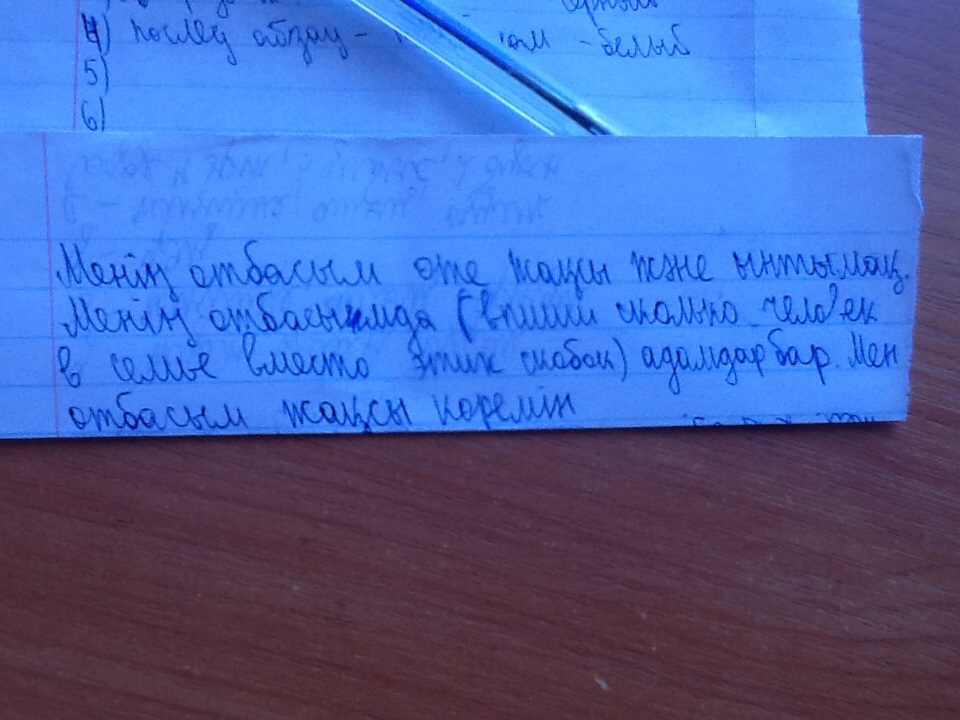 4) послед абзац - ом - белый
5)
6)
Менің отбасым оте жақсы жне ынтымақ.
Менің отбасымда (впиши сколько человек
в семье вместо этих скобок) адамдар бар. Мен
отбасым жақсы коремін